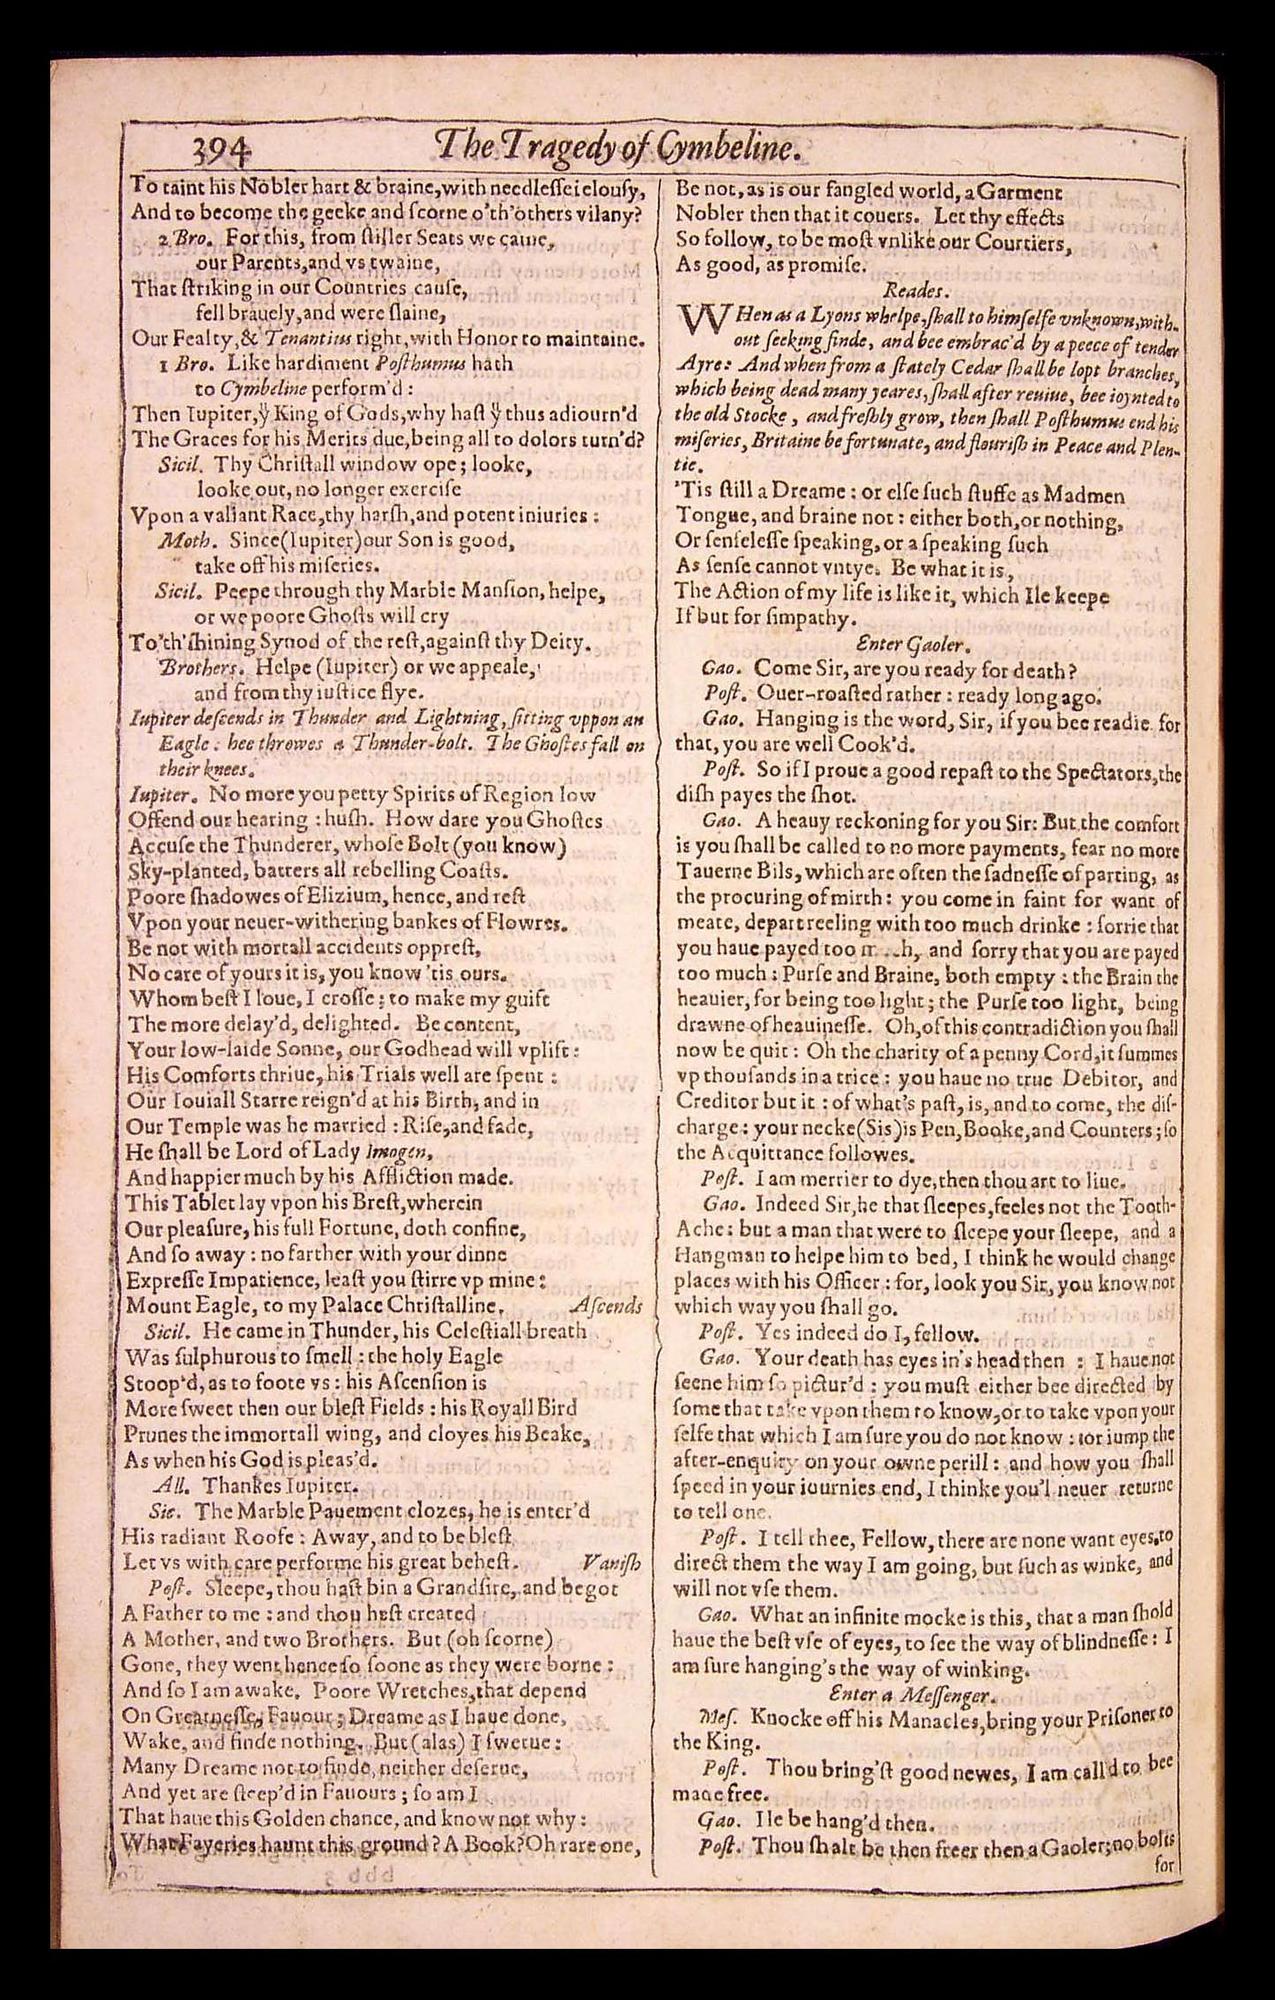 394
The Tragedy of Cymbeline.
To taint his Nobler hart & braine, with needleſſe ielouſy,
And to become the geeke and ſcorne o'th'others vilany?
2 Bro. For this, from ſtiller Seats we came,
our Parents, and vs twaine,
That ſtriking in our Countries cauſe,
fell brauely, and were ſlaine,
Our Fealty, & Tenantius right, with Honor to maintaine.
1 Bro. Like hardiment Poſthumus hath
to Cymbeline perform'd:
Then Iupiter, ẏ King of Gods, why haſt ẏ thus adiourn'd
The Graces for his Merits due, being all to dolors turn'd?
Sicil. Thy Chriſtall window ope; looke,
looke out, no longer exerciſe
Vpon a valiant Race, thy harſh, and potent iniuries:
Moth. Since (Iupiter) our Son is good,
take off his miſeries.
Sicil. Peepe through thy Marble Manſion, helpe,
or we poore Ghoſts will cry
To'th'ſhining Synod of the reſt, againſt thy Deity.
Brothers. Helpe (Iupiter) or we appeale,
and from thy iuſtice flye.
Iupiter deſcends in Thunder and Lightning, ſitting vppon an
Eagle: hee throwes a Thunder-bolt. The Ghoſtes fall on
their knees.
Iupiter. No more you petty Spirits of Region low
Offend our hearing: huſh. How dare you Ghoſtes
Accuſe the Thunderer, whoſe Bolt (you know)
Sky-planted, batters all rebelling Coaſts.
Poore ſhadowes of Elizium, hence, and reſt
Vpon your neuer-withering bankes of Flowres.
Be not with mortall accidents oppreſt,
No care of yours it is, you know 'tis ours.
Whom beſt I loue, I croſſe; to make my guift
The more delay'd, delighted. Be content,
Your low-laide Sonne, our Godhead will vplift:
His Comforts thriue, his Trials well are ſpent:
Our Iouiall Starre reign'd at his Birth, and in
Our Temple was he married: Riſe, and fade,
He ſhall be Lord of Lady Imogen,
And happier much by his Affliction made.
This Tablet lay vpon his Breſt, wherein
Our pleaſure, his full Fortune, doth confine,
And ſo away: no farther with your dinne
Expreſſe Impatience, leaſt you ſtirre vp mine:
Mount Eagle, to my Palace Chriſtalline. Aſcends
Sicil. He came in Thunder, his Celeſtiall breath
Was ſulphurous to ſmell: the holy Eagle
Stoop'd, as to foote vs: his Aſcenſion is
More ſweet then our bleſt Fields: his Royall Bird
Prunes the immortall wing, and cloyes his Beake,
As when his God is pleas'd.
All. Thankes Iupiter.
Sic. The Marble Pauement clozes, he is enter'd
His radiant Roofe: Away, and to be bleſt
Let vs with care performe his great beheſt. Vaniſh
Poſt. Sleepe, thou haſt bin a Grandſire, and begot
A Father to me: and thou haſt created
A Mother, and two Brothers. But (oh ſcorne)
Gone, they went hence ſo ſoone as they were borne:
And ſo I am awake. Poore Wretches, that depend
On Greatneſſe, Fauour; Dreame as I haue done,
Wake, and finde nothing. But (alas) I ſwerue:
Many Dreame not to finde, neither deſerue,
And yet are ſteep'd in Fauours; ſo am I
That haue this Golden chance, and know not why:
What Fayeries haunt this ground? A Book? Oh rare one,
Be not, as is our fangled world, a Garment
Nobler then that it couers. Let thy effects
So follow, to be moſt vnlike our Courtiers,
As good, as promiſe.
Reades.
WHen as a Lyons whelpe, ſhall to himſelfe vnknown, with-
out ſeeking finde, and bee embrac'd by a peece of tender
Ayre: And when from a ſtately Cedar ſhall be lopt branches,
which being dead many yeares, ſhall after reuiue, bee ioynted to
the old Stocke, and freſhly grow, then ſhall Poſthumus end his
miſeries, Britaine be fortunate, and flouriſh in Peace and Plen-
tie.
'Tis ſtill a Dreame: or elſe ſuch ſtuffe as Madmen
Tongue, and braine not: either both, or nothing,
Or ſenſeleſſe ſpeaking, or a ſpeaking ſuch
As ſenſe cannot vntye. Be what it is,
The Action of my life is like it, which Ile keepe
If but for ſimpathy.
Enter Gaoler.
Gao. Come Sir, are you ready for death?
Poſt. Ouer-roaſted rather: ready long ago.
Gao. Hanging is the word, Sir, if you bee readie for
that, you are well Cook'd.
Poſt. So if I proue a good repaſt to the Spectators, the
diſh payes the ſhot.
Gao. A heauy reckoning for you Sir: But the comfort
is you ſhall be called to no more payments, fear no more
Tauerne Bils, which are often the ſadneſſe of parting, as
the procuring of mirth: you come in faint for want of
meate, depart reeling with too much drinke: ſorrie that
you haue payed too and ſorry that you are payed
too much: Purſe and Braine, both empty: the Brain the
heauier, for being too light; the Purſe too light, being
drawne of heauineſſe. Oh, of this contradiction you ſhall
now be quit: Oh the charity of a penny Cord, it ſummes
vp thouſands in a trice: you haue no true Debitor, and
Creditor but it: of what's paſt, is, and to come, the diſ-
charge: your necke (Sis) is Pen, Booke, and Counters; ſo
the Acquittance followes.
Poſt. I am merrier to dye, then thou art to liue.
Gao. Indeed Sir, he that ſleepes, feeles not the Tooth-
Ache: but a man that were to ſleepe your ſleepe, and a
Hangman to helpe him to bed, I think he would change
places with his Officer: for, look you Sir, you know not
which way you ſhall go.
Poſt. Yes indeed do I, fellow.
Gao. Your death has eyes in's head then: I haue not
ſeene him ſo pictur'd: you muſt either bee directed by
ſome that take vpon them to know, or to take vpon your
ſelfe that which I am ſure you do not know: or iump the
after-enquiry on your owne perill: and how you ſhall
ſpeed in your iournies end, I thinke you'l neuer returne
to tell one.
Poſt. I tell thee, Fellow, there are none want eyes, to
direct them the way I am going, but ſuch as winke, and
will not vſe them.
Gao. What an infinite mocke is this, that a man ſhold
haue the beſt vſe of eyes, to ſee the way of blindneſſe: I
am ſure hanging's the way of winking.
Enter a Meſſenger.
Meſ. Knocke off his Manacles, bring your Priſoner to
the King.
Poſt. Thou bring'ſt good newes, I am call'd to bee
made free.
Gao. Ile be hang'd then.
Poſt. Thou ſhalt be then freer then a Gaoler; no bolts
for